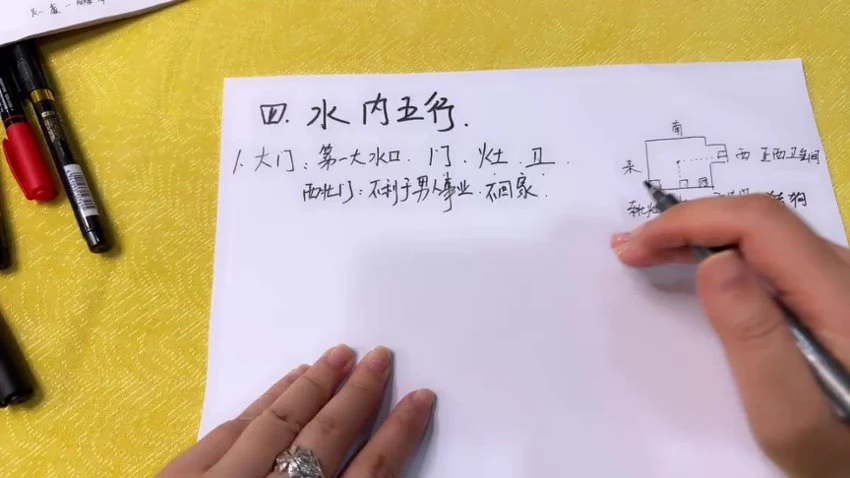 四. 水 内五行.
1. 大门: 第一大水口. 门. 灶. 卫.
西北门: 不利于男人事业. 不回家.
南
东
西 正西卫生间
狗